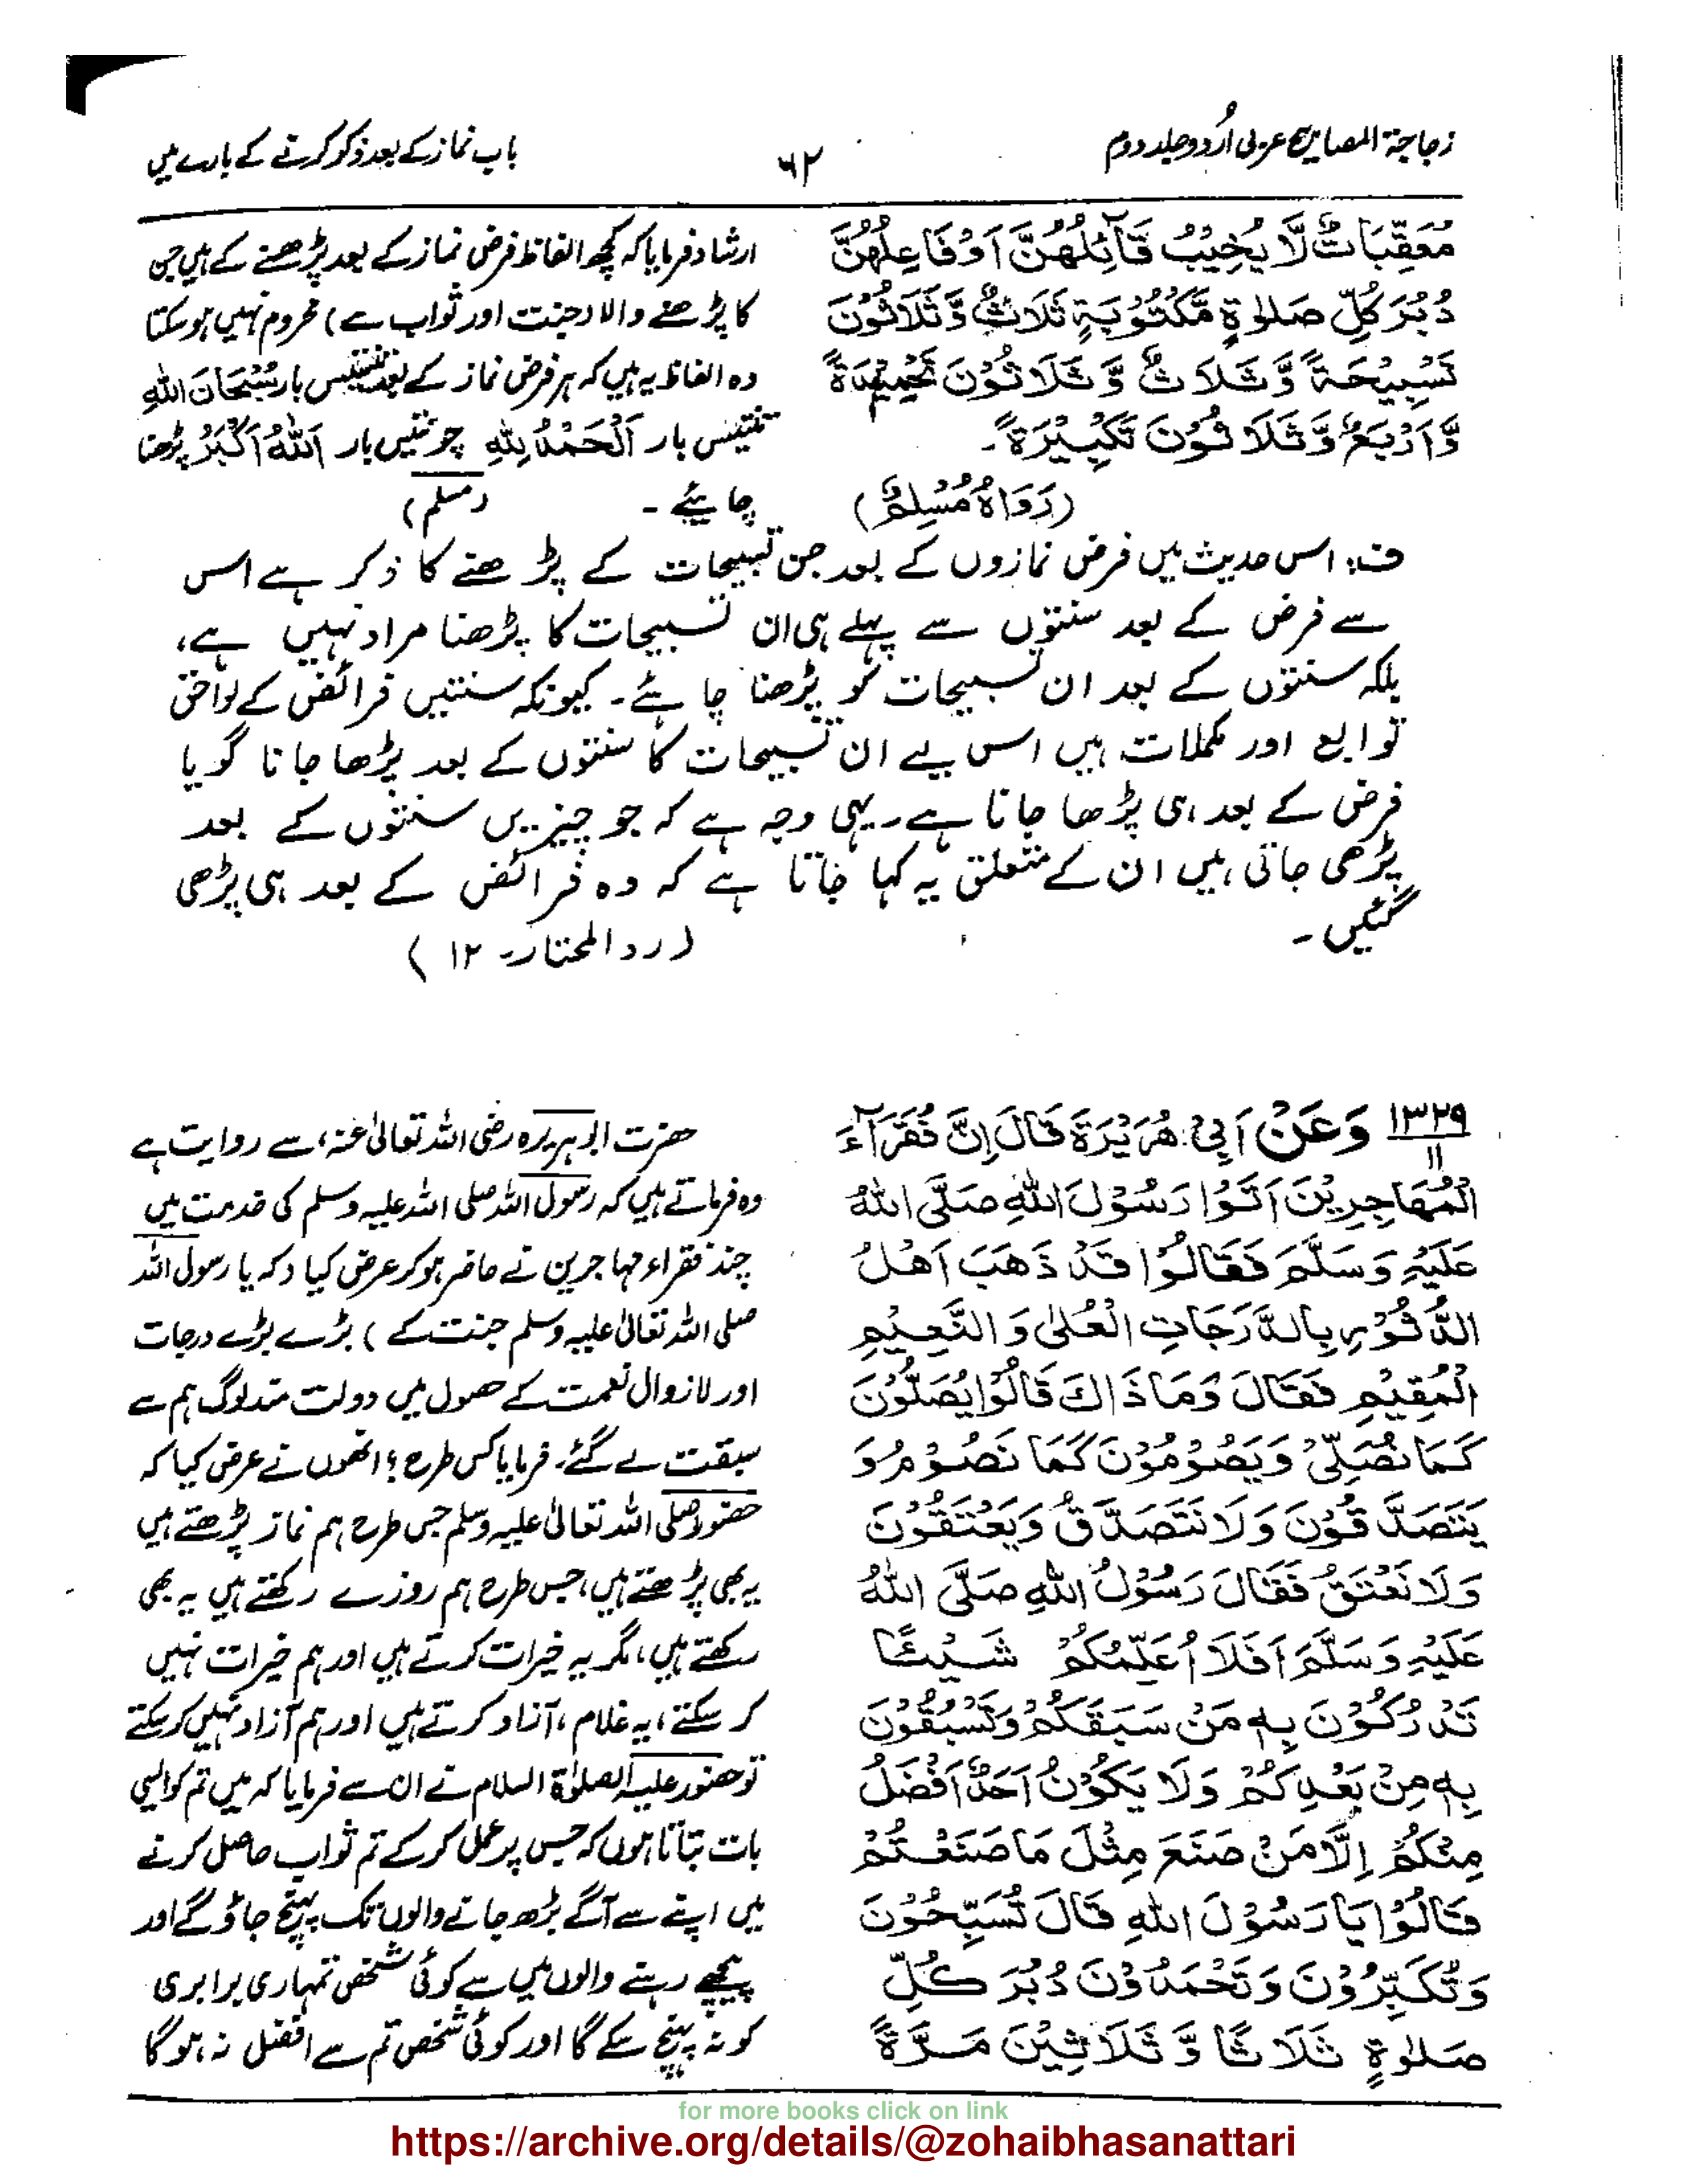 زجاجۃ المصابیح عربی اُردو جلد دوم
۶۲
باب نماز کے بعد ذکر کرنے کے بارے میں
مُعَقِّبَاتٌ لَّا يُخِيْبُ قَآئِلُهُنَّ اَوْ فَاعِلُهُنَّ
دُبُرَ كُلِّ صَلٰوةٍ مَّكْتُوْبَةٍ ثَلَاثٌ وَّثَلَاثُوْنَ
تَسْبِيْحَةً وَّثَلَاثٌ وَّثَلَاثُوْنَ تَحْمِيْدَةً
وَّاَرْبَعٌ وَّثَلَاثُوْنَ تَكْبِيْرَةً۔
(رَوَاهُ مُسْلِمٌ)
ارشاد فرمایا کہ کچھ الفاظ فرض نماز کے بعد پڑھنے کے ہیں جن
کا پڑھنے والا (جنت اور ثواب سے) محروم نہیں ہو سکتا
وہ الفاظ یہ ہیں کہ ہر فرض نماز کے بعد تینتیس بار سُبْحَانَ اللہِ
تینتیس بار اَلْحَمْدُ لِلہِ چونتیس بار اَللہُ اَکْبَرُ پڑھنا
چاہیئے۔ (مسلم)
ف: اس حدیث میں فرض نمازوں کے بعد جن تسبیحات کے پڑھنے کا ذکر ہے اس
سے فرض کے بعد سنتوں سے پہلے ہی ان تسبیحات کا پڑھنا مراد نہیں ہے،
بلکہ سنتوں کے بعد ان تسبیحات کو پڑھنا چاہئے۔ کیونکہ سنتیں فرائض کے لواحق
توابع اور مکملات ہیں اس لیے ان تسبیحات کا سنتوں کے بعد پڑھا جانا گویا
فرض کے بعد ہی پڑھا جاتا ہے۔ یہی وجہ ہے کہ جو چیزیں سنتوں کے بعد
پڑھی جاتی ہیں ان کے متعلق یہ کہا جاتا ہے کہ وہ فرائض کے بعد ہی پڑھی
گئیں۔ (رد المحتار۔ ۱۲)
۱۳۲۹
۱۱
وَعَنْ اَبِيْ هُرَيْرَةَ قَالَ اِنَّ فُقَرَآءَ
الْمُهَاجِرِيْنَ اَتَوْا رَسُوْلَ اللهِ صَلَّى اللهُ
عَلَيْهِ وَسَلَّمَ فَقَالُوْا قَدْ ذَهَبَ اَهْلُ
الدُّثُوْرِ بِالدَّرَجَاتِ الْعُلٰى وَالنَّعِيْمِ
الْمُقِيْمِ فَقَالَ وَمَا ذَاكَ قَالُوْا يُصَلُّوْنَ
كَمَا نُصَلِّيْ وَيَصُوْمُوْنَ كَمَا نَصُوْمُ وَ
يَتَصَدَّقُوْنَ وَلَا نَتَصَدَّقُ وَيَعْتَقُوْنَ
وَلَا نَعْتَقُ فَقَالَ رَسُوْلُ اللهِ صَلَّى اللهُ
عَلَيْهِ وَسَلَّمَ اَفَلَا اُعَلِّمُكُمْ شَيْئًا
تَدْرُكُوْنَ بِهٖ مَنْ سَبَقَكُمْ وَتَسْبِقُوْنَ
بِهٖ مِنْ بَعْدِكُمْ وَلَا يَكُوْنُ اَحَدٌ اَفْضَلُ
مِنْكُمْ اِلَّا مَنْ صَنَعَ مِثْلَ مَا صَنَعْتُمْ
قَالُوْا يَا رَسُوْلَ اللهِ قَالَ تُسَبِّحُوْنَ
وَتُكَبِّرُوْنَ وَتَحْمَدُوْنَ دُبُرَ كُلِّ
صَلٰوةٍ ثَلَاثًا وَّثَلَاثِيْنَ مَرَّةً
حضرت ابوہریرہ رضی اللہ تعالیٰ عنہ، سے روایت ہے
وہ فرماتے ہیں کہ رسول اللہ صلی اللہ علیہ وسلم کی خدمت میں
چند فقراء مہاجرین نے حاضر ہو کر عرض کیا (کہ یا رسول اللہ
صلی اللہ تعالیٰ علیہ وسلم جنت کے) بڑے بڑے درجات
اور لازوال نعمت کے حصول میں دولت مند لوگ ہم سے
سبقت لے گئے۔ فرمایا کس طرح؟ انھوں نے عرض کیا کہ
حضور صلی اللہ تعالیٰ علیہ وسلم جس طرح ہم نماز پڑھتے ہیں
یہ بھی پڑھتے ہیں، جس طرح ہم روزے رکھتے ہیں یہ بھی
رکھتے ہیں، مگر یہ خیرات کرتے ہیں اور ہم خیرات نہیں
کر سکتے، یہ غلام، آزاد کرتے ہیں اور ہم آزاد نہیں کر سکتے
تو حضور علیہ الصلوٰۃ السلام نے ان سے فرمایا کہ میں تم کو ایسی
بات بتاتا ہوں کہ جس پر عمل کر کے تم ثواب حاصل کرنے
میں اپنے سے آگے بڑھ جانے والوں تک پہنچ جاؤ گے اور
پیچھے رہنے والوں میں سے کوئی شخص تمہاری برابری
کو نہ پہنچ سکے گا اور کوئی شخص تم سے افضل نہ ہو گا
for more books click on link
https://archive.org/details/@zohaibhasanattari